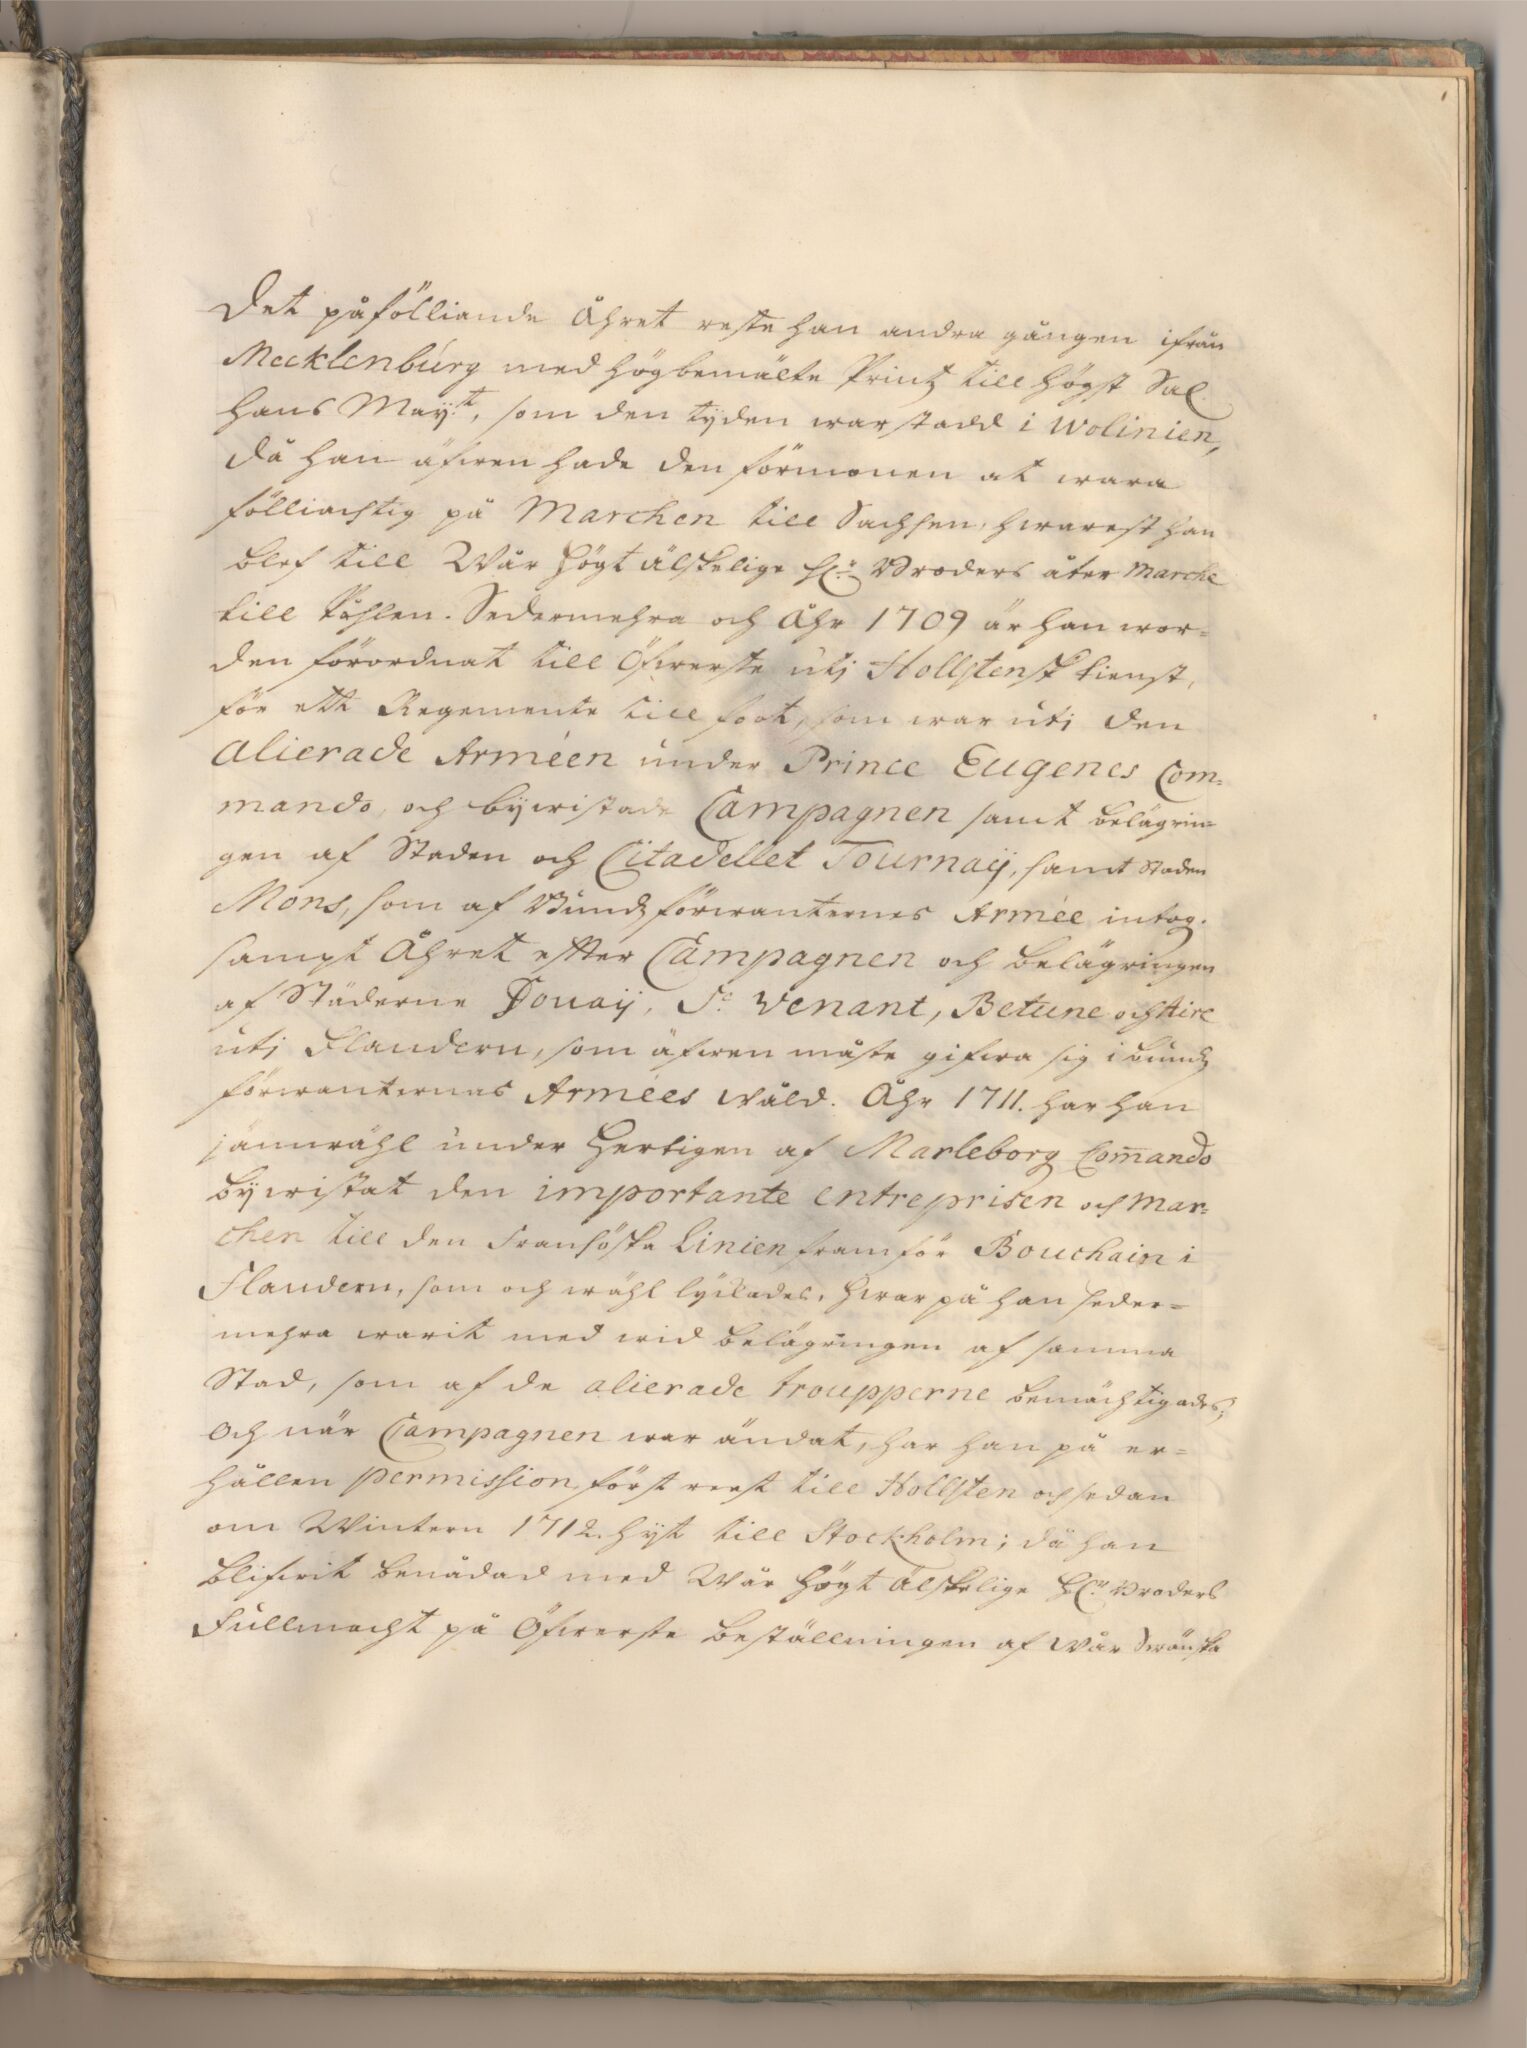 Det påfölliande Åhret reste han andra gången ifrån
Mecklenburg med högbemälte Printz till Högst Sal.
Hans Maÿ:t, som den tÿden war stadd i Wolinien,
då han äfwen hade den förmonen at wara
fölliachtig på Marchen till Sachsen, hwarest han
blef till Wår Högt älskelige H:r Broders åter Marche
till Påhlen. Sedermehra och Åhr 1709 är han wor=
den förordnat till Öfwerste utj Hollstensk tienst,
för ett Regemente till foot, som war uti den
alierade Arméen under Prince Eugenes Com=
mando, och bÿwistade Campagnen samt belägrin=
gen af Staden och Citadellet Tournaÿ, samt Staden
Mons, som af Bundzförwanternes Armée intog.
sampt Åhret effter Campagnen och belägringen
af Städerne Douaÿ, S:t Venant, Betune och Aire
utj Flandern, som äfwen måste gifwa sig i bundz
förwanternas Armées wåld. Åhr 1711. har han
jämwähl under Hertigen af Marleborg Com̅ando
bÿwistat den importante entreprisen och Mar=
chen till den Fransöska Linien framför Bouchain i
Flandern, som och wähl lÿckades, hwar på han seder=
mehra warit med wid belägringen af samma
Stad, som af de alierade troupperne bemächtigades;
Och när Campagnen war ändat, har han på er=
hållen permission, först reest till Hollsten och sedan
om Wintern 1712. hÿt till Stockholm; då han
blifwit benådad med Wår Högt älskelige H:r Broders
Fullmacht på Öfwerste beställningen af Wår Swänska